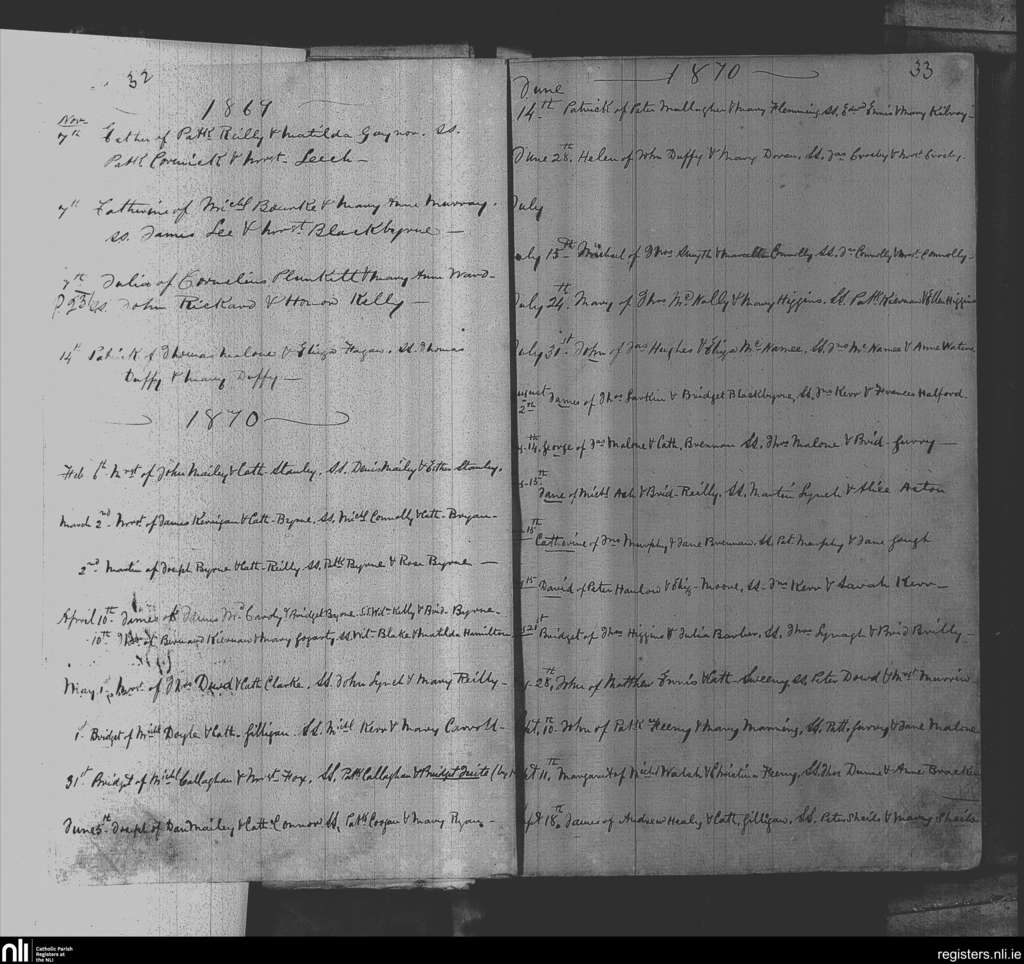 32
1869
Novr
7th Esther of Patk Reilly & Matilda Gaynor. SS.
Patk Cormick & Mrgt. Leech
7th Catherine of Michl Bourke & Mary Anne Murray.
SS. James Lee & Mrgt. Blackbyrne
7th Julia of Cornelius Plunkett & Mary Anne Ward
SS. John Rickard & Honor Kelly
14th Patrick of Thomas Malone & Eliza Fagan. SS. Thomas
Duffy & Mary Duffy
1870
Feb 6th Mrgt of John Mailey & Cath Stanley. SS. Denis Maily & Esther Stanley.
March 2nd Mrgt. of James Kerrigan & Cath Byrne. SS. Michl Connolly & Cath Bryan
2nd Martin of Joseph Byrne & Cath Reilly SS. Patk Byrne & Rose Byrne
April 10th James of James Mc Cardy & Bridget Byrne. SS. Wm Kelly & Brid. Byrne
10th of Bernard Kiernan & Mary Fogarty, SS Wm Blake & Matilda Hamilton
May 1st Mrgt. of Thos Dowd & Cath Clarke. SS. John Lynch & Mary Reilly
1st Bridget of Michl Doyle & Cath. Gilligan. SS. Michl Kerr & Mary Carroll
31st Bridget of Michl Callaghan & Mrgt. Fox, SS. Patk Callaghan & Bridget Tuite
June 5th Joseph of Danl Mailey & Cath Connor SS, Patk Cogan & Mary Ryan
33
1870
June
14th Patrick of Peter Mullagher & Mary Flemming SS. Edwd Ennis & Mary Kilroy
June 28th. Helen of John Duffy & Mary Doran. SS. Jas Crosby & Mrgt Crosby.
July
July 15th Michael of Thos Smyth & Marcella Connolly SS. Jno Connolly & Mrgt. Connolly
July 24th. Mary of Thos Mc Nally & Mary Higgins. SS. Patk Kiernan & Ellen Higgins
July 31st. John of Jas Hughes & Eliza Mc Namee, SS. Jno Mc Namee & Anne Waters
August
2nd James of Thos Larkin & Bridget Blackbyrne, SS. Jno Kerr & Frances Halford.
14th. George of Jas Malone & Cath. Brennan SS. Thos Malone & Brid. Gurry
15th Jane of Michl Ash & Brid. Reilly. SS. Martin Lynch & Alice Aston
15th Catherine of Jno Murphy & Jane Brennan. SS. Pat. Murphy & Jane Gough
15 David of Peter Hanlow & Eliz. Moore, SS. Jno Kerr & Sarah Kerr
21st Bridget of Thos Higgins & Julia Barber. SS. Thos Lynagh & Brid Brilly
28th, John of Matthew Ennis & Cath. Sweeny SS. Peter Dowd & Mrgt Murrin
Sept. 10th John of Patk Feeny & Mary Manning, SS. Patk. Gurry & Jane Malone
Sept 11th, Margaret of Michl Walsh & Christina Feeny, SS. Thos Dunne & Anne Bracken
Sept 18th James of Andrew Healy & Cath. Gilligan, SS. Peter Sheils & Mary Sheils
nli
Catholic Parish
Registers at
the NLI
registers.nli.ie